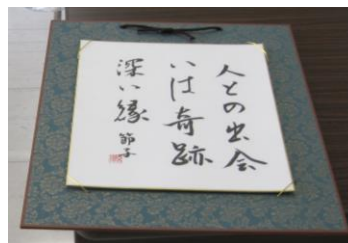 人との出会
いは奇跡
深い縁
節子